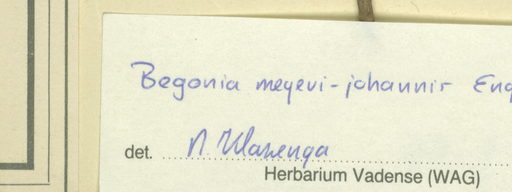 Begonia meyeri-johannis Eng
det. N. Klazenga
Herbarium Vadense (WAG)